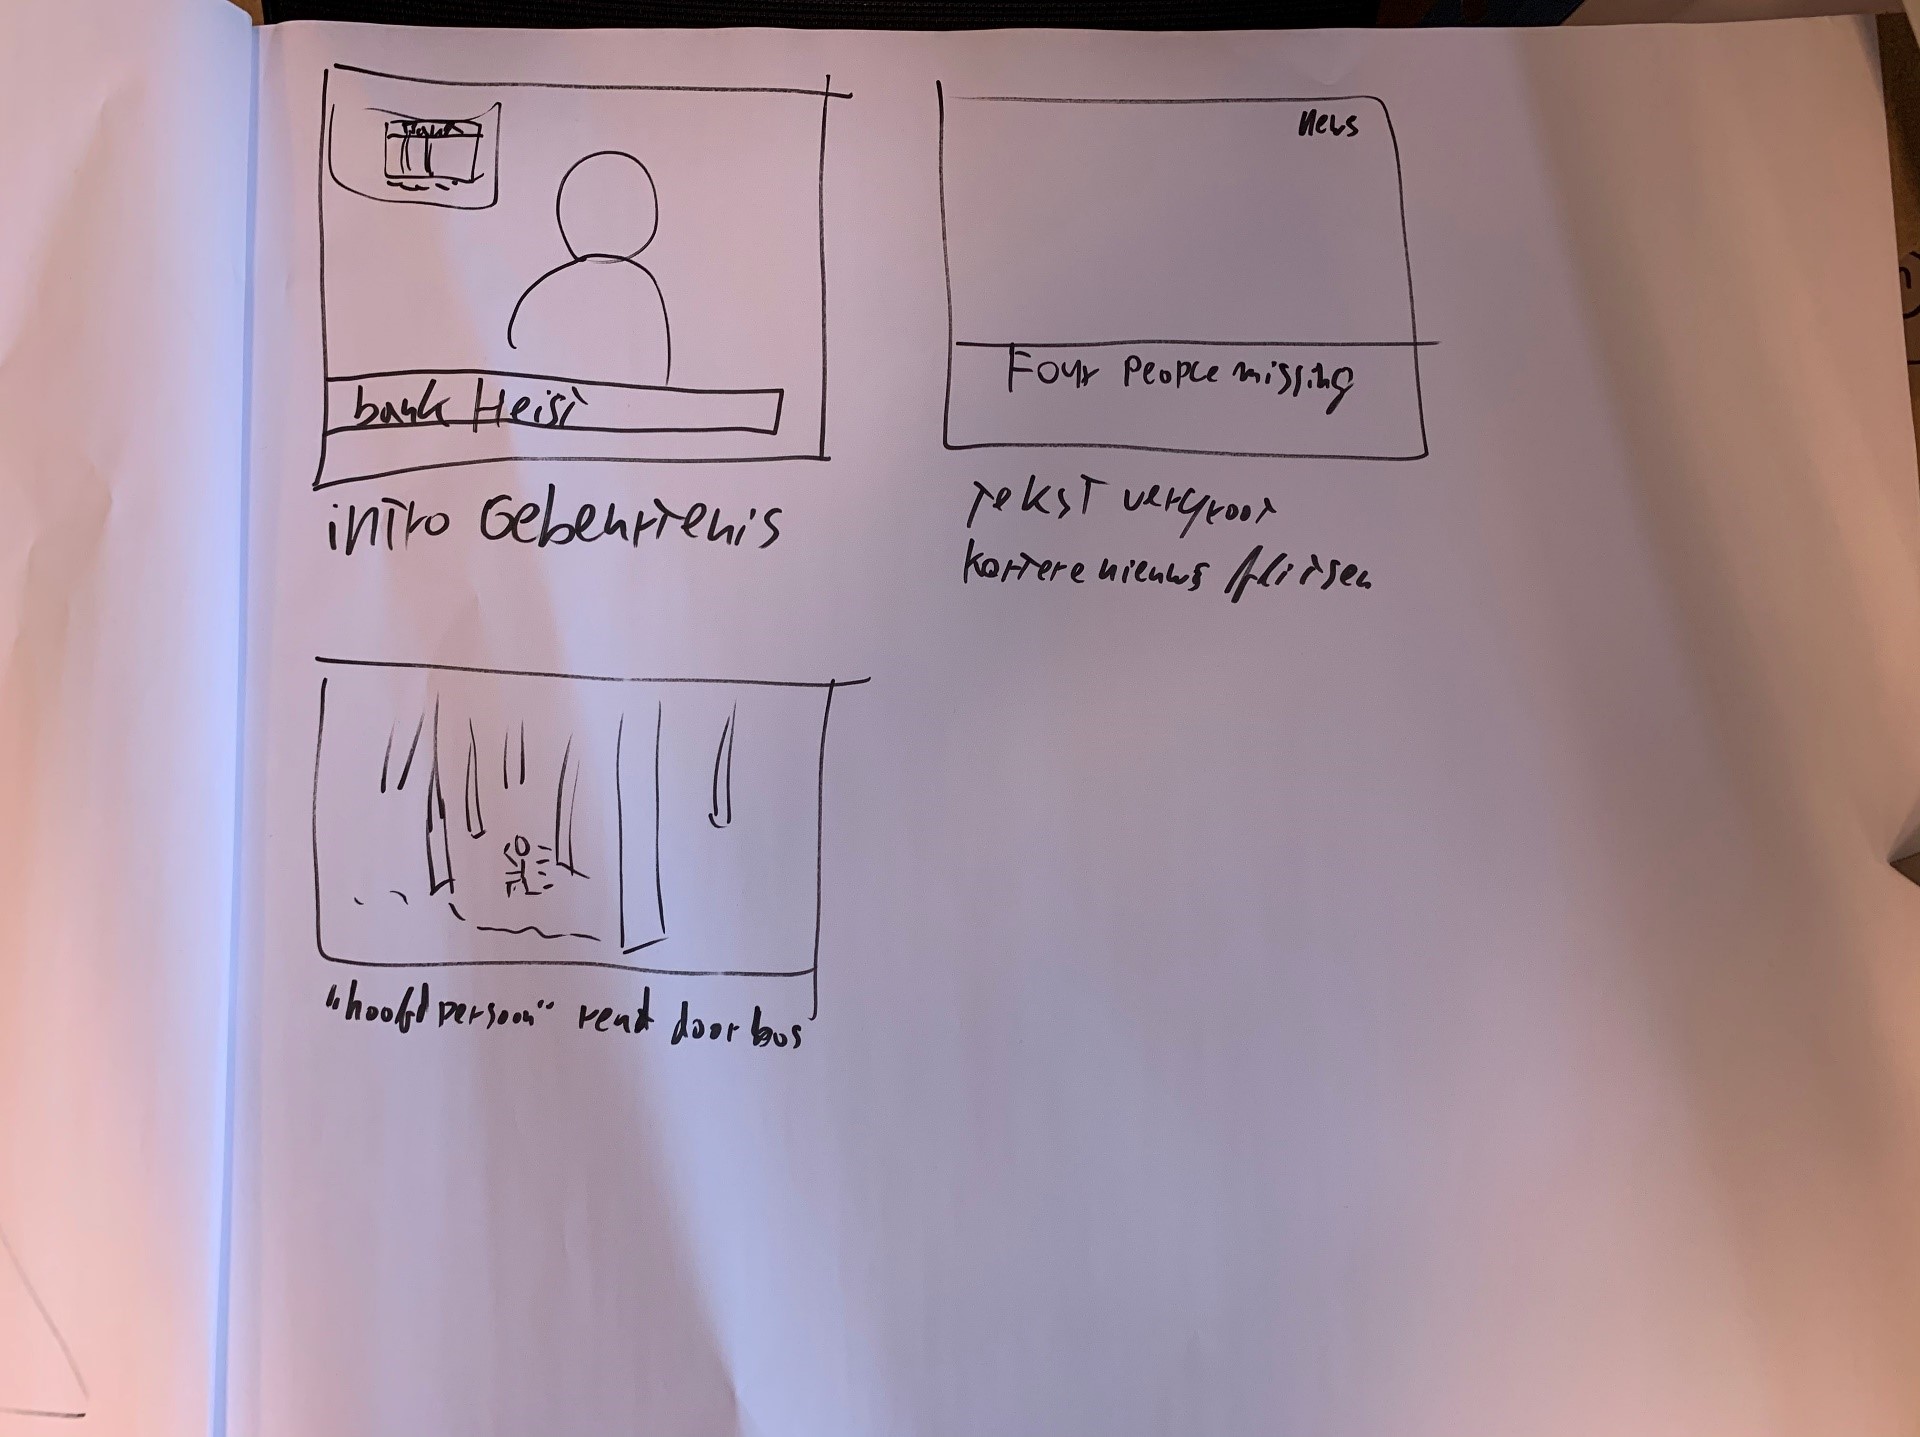 Bank
bank Heist
intro Gebeurtenis
News
Four People missing
Tekst vergroot
kortere nieuws flitsen
"hoofd persoon" rent door bos